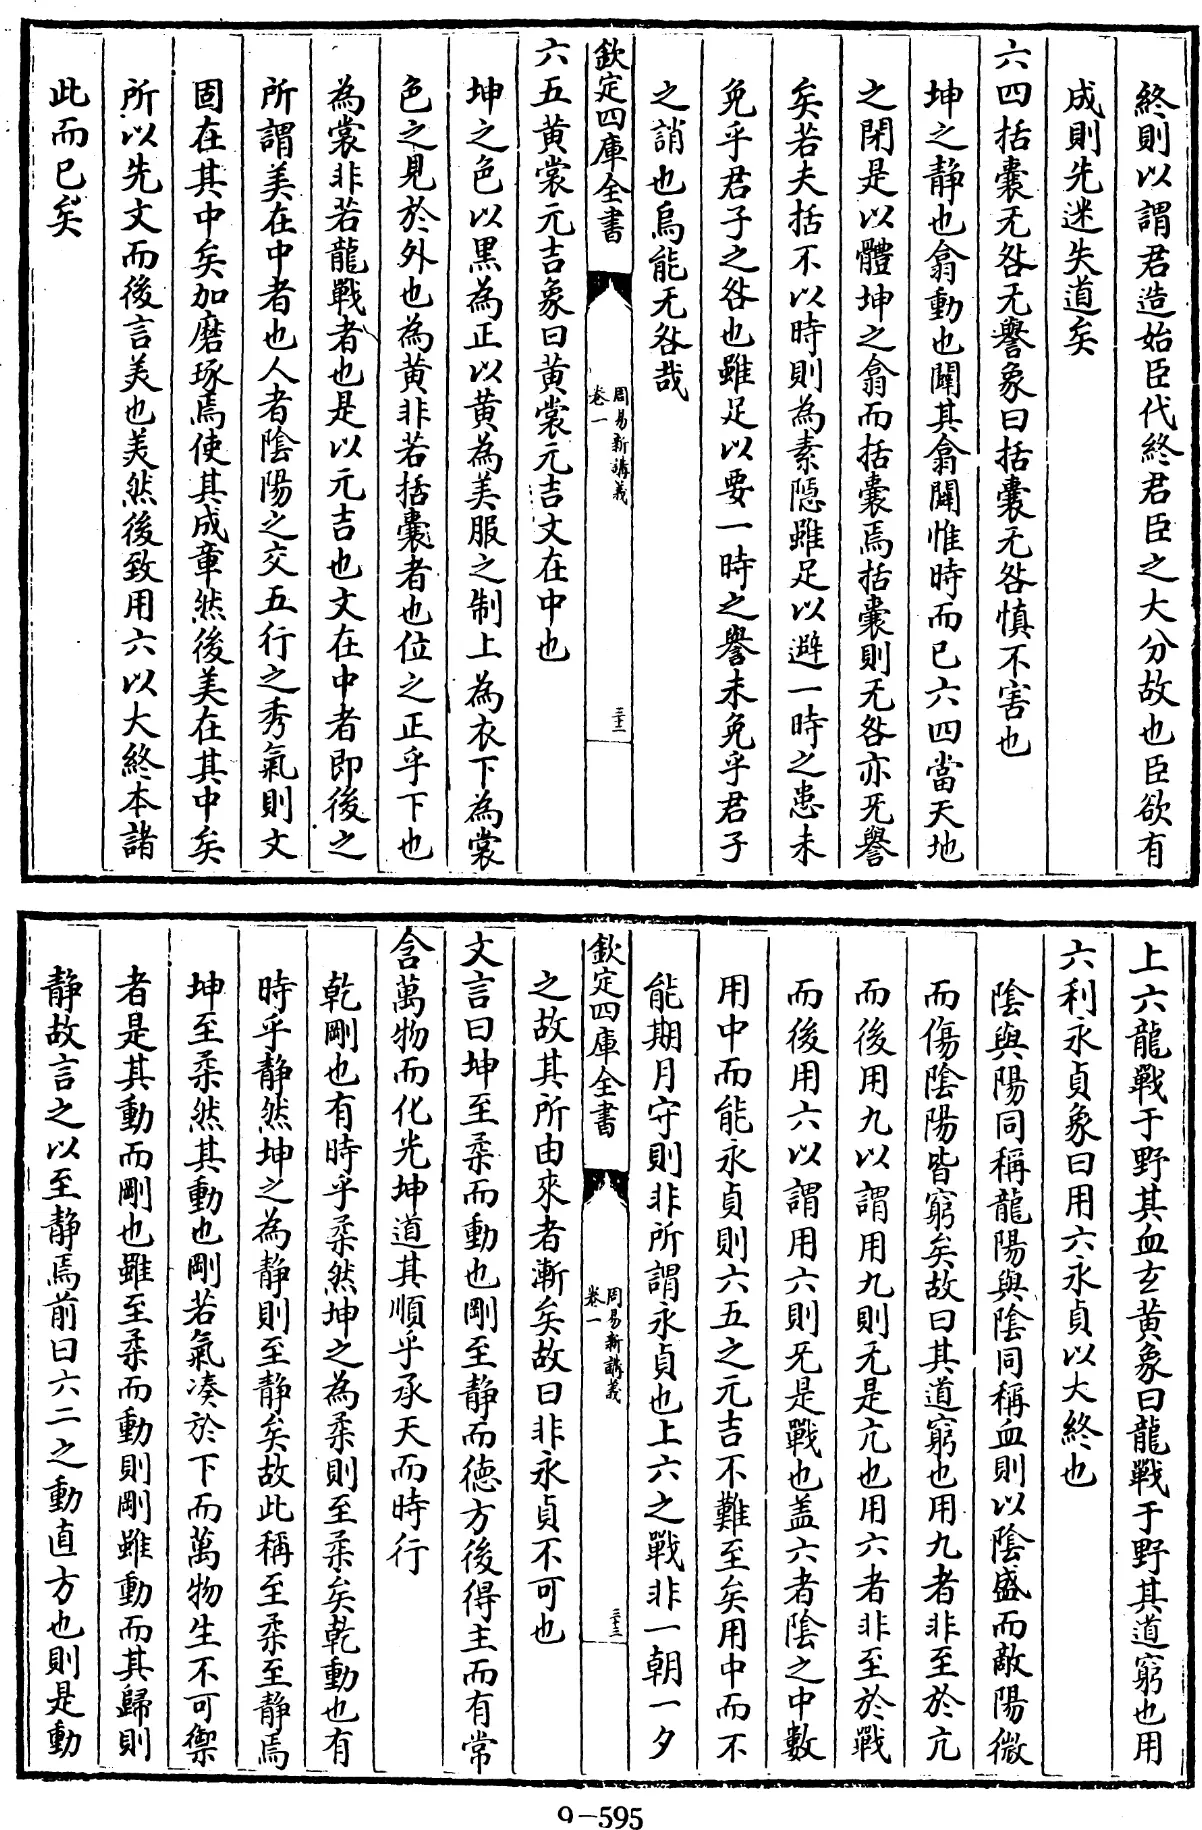 終則以謂君造始臣代終君臣之大分故也臣欲有
成則先迷失道矣
六四括囊无咎无譽象曰括囊无咎慎不害也
坤之静也翕動也闢其翕闢惟時而已六四當天地
之閉是以體坤之翕而括囊焉括囊則无咎亦无譽
矣若夫括不以時則為素隠雖足以避一時之患未
免乎君子之咎也雖足以要一時之譽未免乎君子
之誚也烏能无咎哉
欽定四庫全書
周易新講義
卷一
三十二
六五黄裳元吉象曰黄裳元吉文在中也
坤之色以黒為正以黄為美服之制上為衣下為裳
色之見於外也為黄非若括囊者也位之正乎下也
為裳非若龍戰者也是以元吉也文在中者即後之
所謂美在中者也人者陰陽之交五行之秀氣則文
固在其中矣加磨琢焉使其成章然後美在其中矣
所以先文而後言美也美然後致用六以大終本諸
此而已矣
上六龍戰于野其血玄黄象曰龍戰于野其道窮也用
六利永貞象曰用六永貞以大終也
陰與陽同稱龍陽與陰同稱血則以陰盛而敵陽微
而傷陰陽皆窮矣故曰其道窮也用九者非至於亢
而後用九以謂用九則无是亢也用六者非至於戰
而後用六以謂用六則无是戰也盖六者陰之中數
用中而能永貞則六五之元吉不難至矣用中而不
能期月守則非所謂永貞也上六之戰非一朝一夕
欽定四庫全書
周易新講義
卷一
三十三
之故其所由來者漸矣故曰非永貞不可也
文言曰坤至柔而動也剛至静而徳方後得主而有常
含萬物而化光坤道其順乎承天而時行
乾剛也有時乎柔然坤之為柔則至柔矣乾動也有
時乎静然坤之為静則至静矣故此稱至柔至静焉
坤至柔然其動也剛若氣凑於下而萬物生不可禦
者是其動而剛也雖至柔而動則剛雖動而其歸則
静故言之以至静焉前曰六二之動直方也則是動
9-595